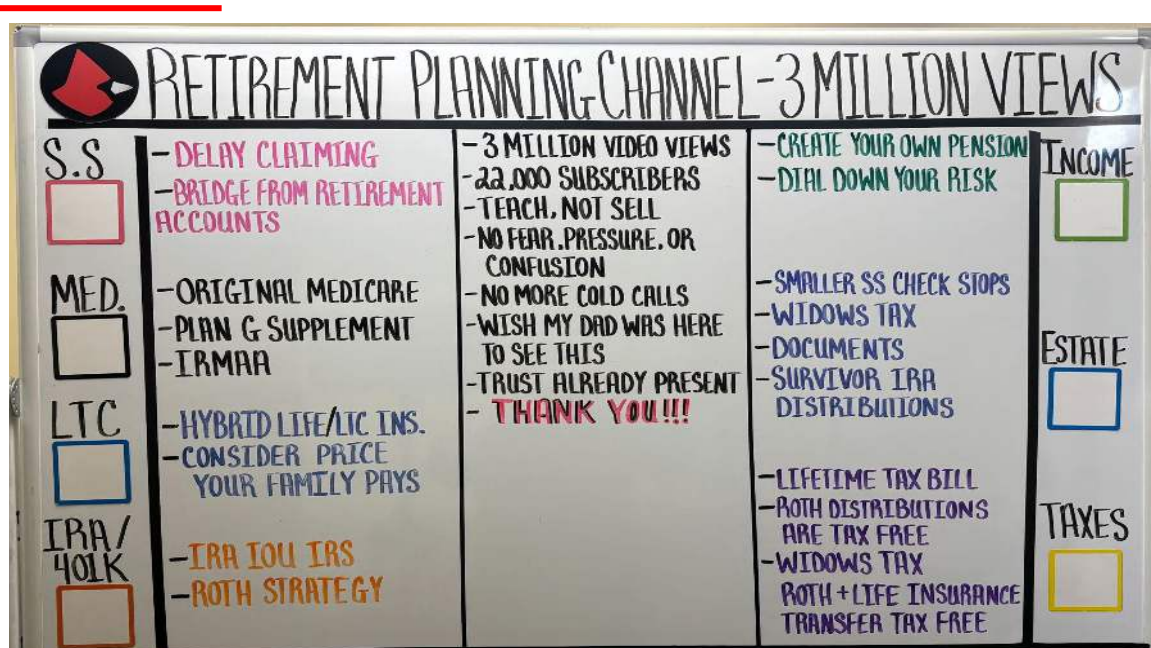 RETIREMENT PLANNING CHANNEL - 3 MILLION VIEWS
S.S
- DELAY CLAIMING
- BRIDGE FROM RETIREMENT
ACCOUNTS
MED.
- ORIGINAL MEDICARE
- PLAN G SUPPLEMENT
- IRMAA
LTC
- HYBRID LIFE/LTC INS.
- CONSIDER PRICE
YOUR FAMILY PAYS
IRA/
401K
- IRA IOU IRS
- ROTH STRATEGY
- 3 MILLION VIDEO VIEWS
- 22,000 SUBSCRIBERS
- TEACH, NOT SELL
- NO FEAR, PRESSURE, OR
CONFUSION
- NO MORE COLD CALLS
- WISH MY DAD WAS HERE
TO SEE THIS
- TRUST ALREADY PRESENT
- THANK YOU!!!
- CREATE YOUR OWN PENSION
- DIAL DOWN YOUR RISK
- SMALLER SS CHECK STOPS
- WIDOWS TAX
- DOCUMENTS
- SURVIVOR IRA
DISTRIBUTIONS
- LIFETIME TAX BILL
- ROTH DISTRIBUTIONS
ARE TAX FREE
- WIDOWS TAX
ROTH + LIFE INSURANCE
TRANSFER TAX FREE
INCOME
ESTATE
TAXES